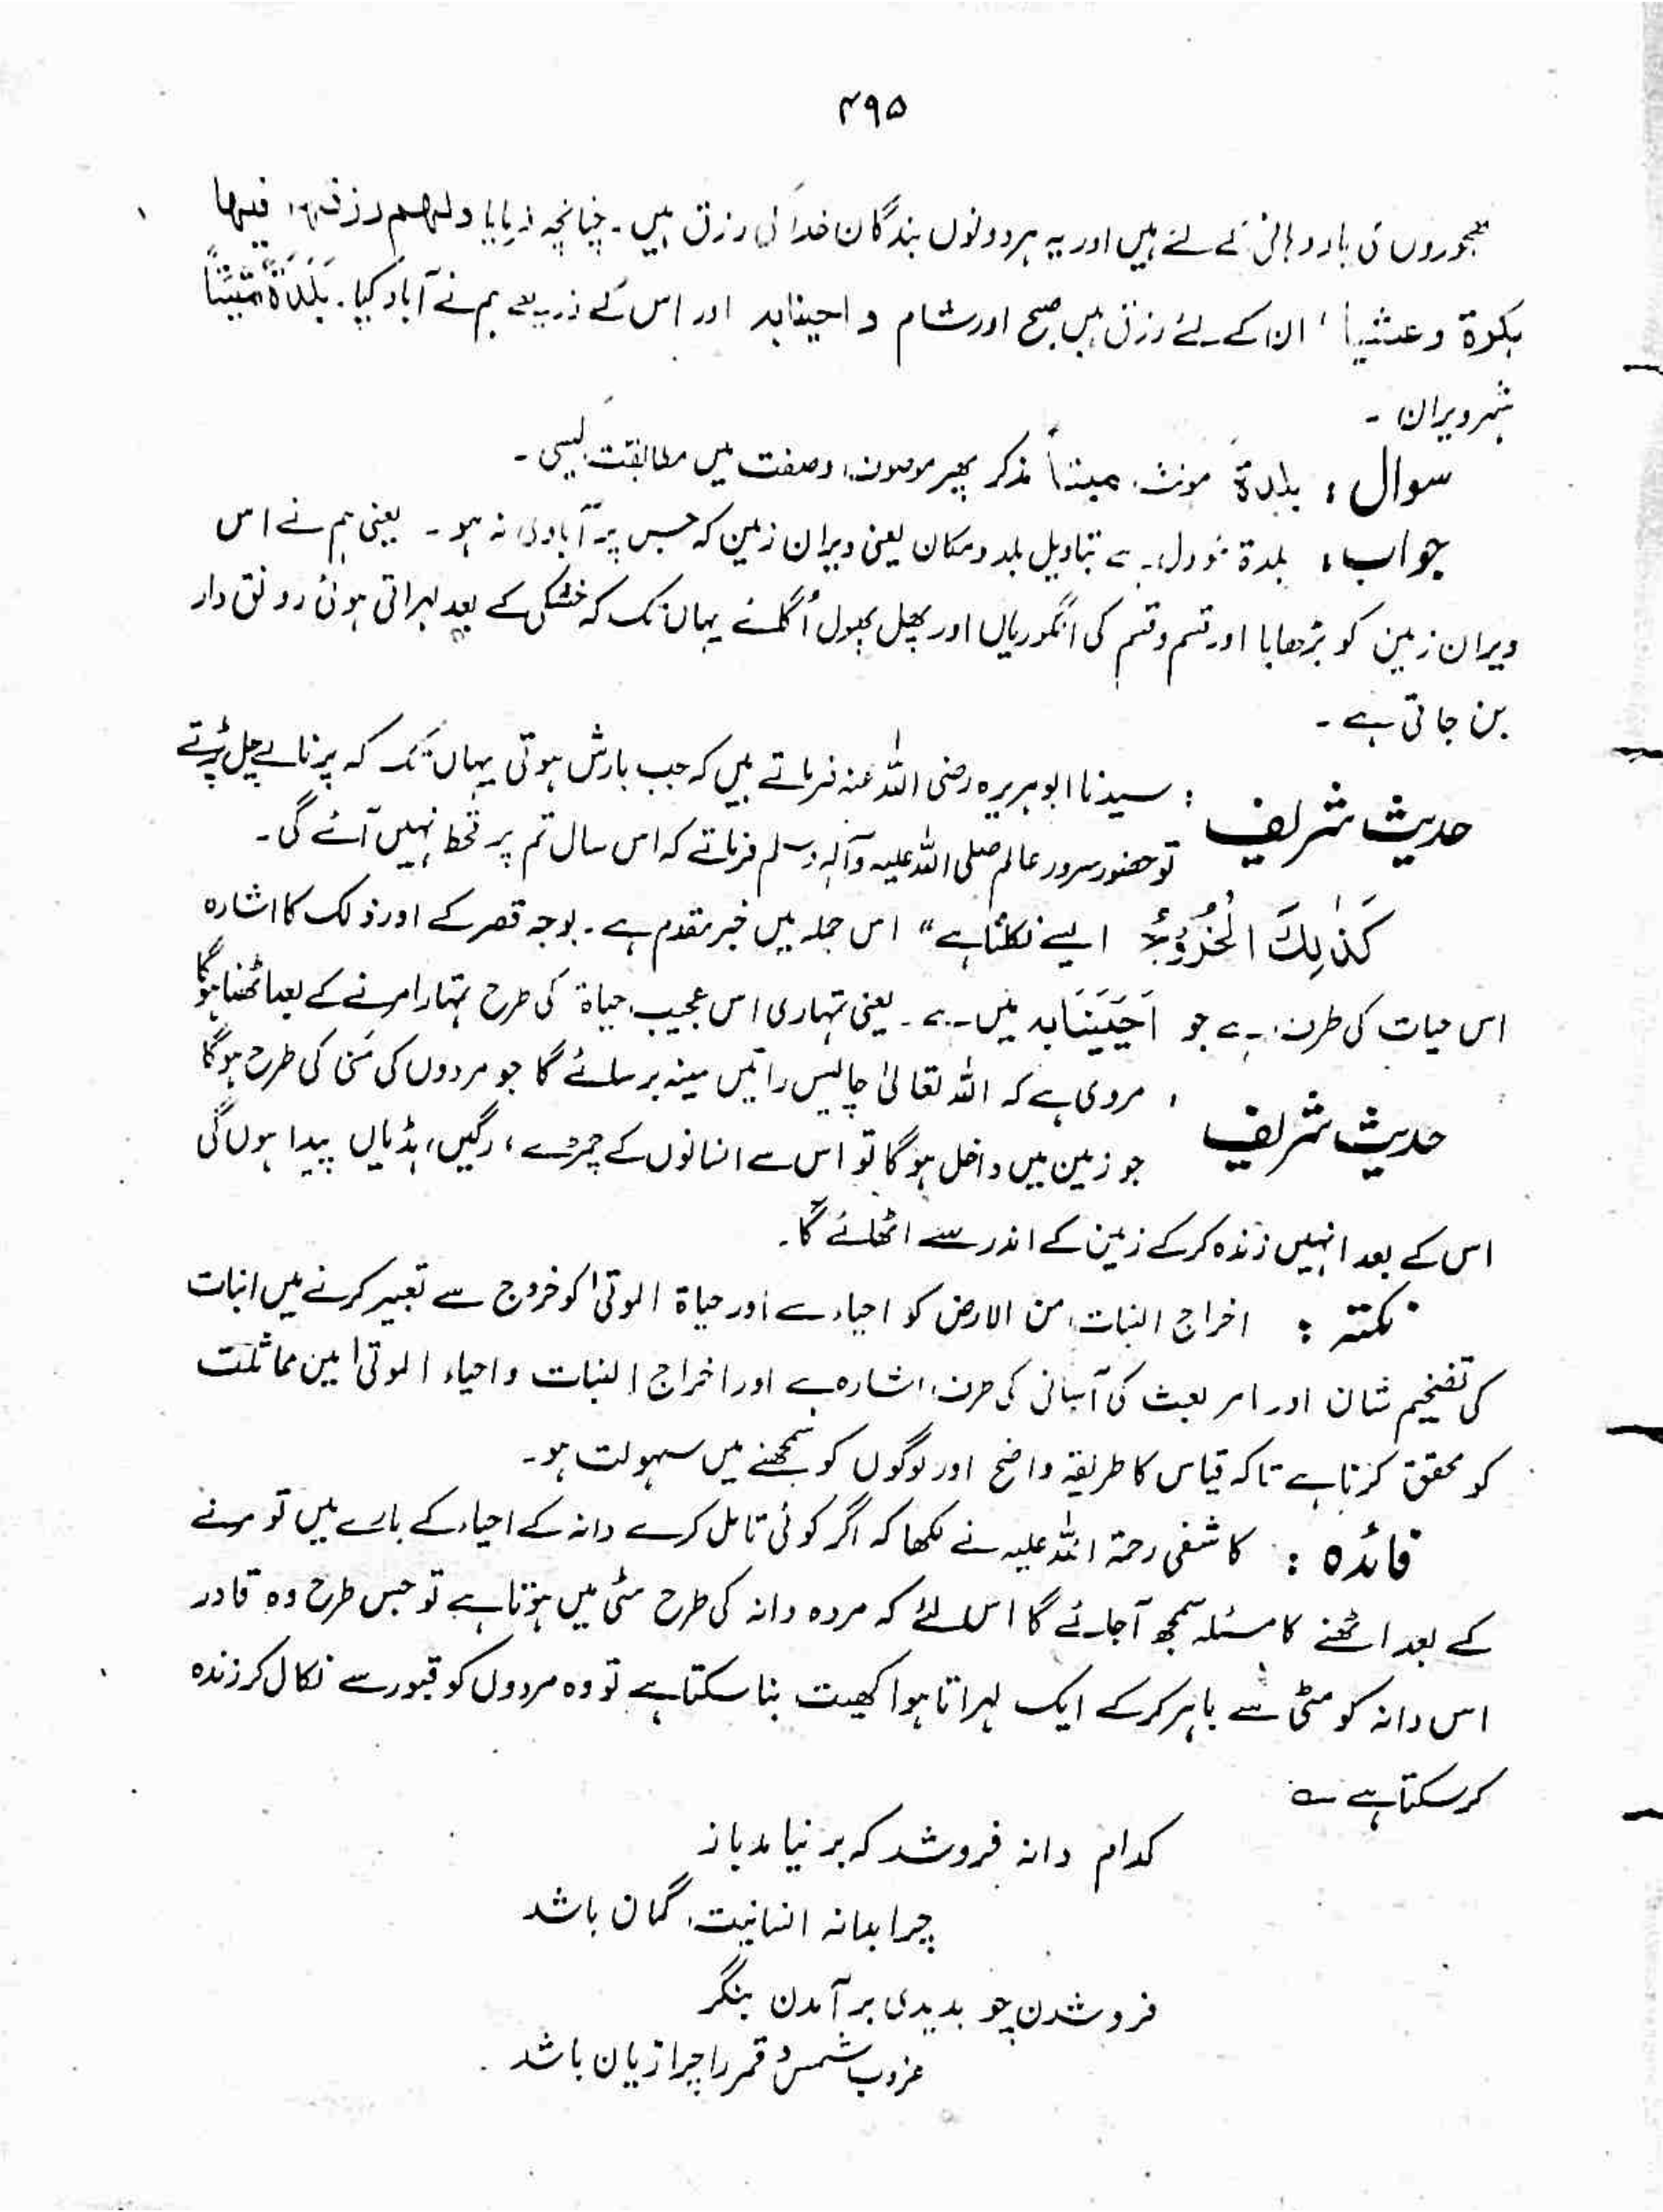 ۴۹۵
کھجوروں کی یاد دہانی کے لئے ہیں اور یہ ہر دونوں بندگان خدا کی رزق ہیں۔ چنانچہ فرمایا ولھم رزقھم فیھا
بکرۃ وعشیا ' ان کے لئے رزق ہیں صبح اور شام و احیینا بہ اور اس کے ذریعے ہم نے آباد کیا۔ بَلْدَۃً مَّیْتًا
شہر ویران ۔
سوال : بلدۃ مونث، میتاً مذکر پھر موصوف، وصفت میں مطابقت کیسی ۔
جواب : بلدۃ مؤول ہے بتاویل بلد و مکان یعنی ویران زمین کہ جس پر آبادی نہ ہو ۔ یعنی ہم نے اس
ویران زمین کو بڑھایا اور قسم و قسم کی انگوریاں اور پھل پھول اُگائے یہاں تک کہ خشکی کے بعد لہراتی ہوئی رونق دار
بن جاتی ہے ۔
حدیث شریف : سیدنا ابو ہریرہ رضی اللہ عنہ فرماتے ہیں کہ جب بارش ہوتی یہاں تک کہ پرنالے چل پڑتے
تو حضور سرور عالم صلی اللہ علیہ وآلہ وسلم فرماتے کہ اس سال تم پر قحط نہیں آئے گی ۔
کَذٰلِکَ الْخُرُوْجُ ایسے نکلنا ہے" اس جملہ میں خبر مقدم ہے ۔ بوجہ قصر کے اور ذلک کا اشارہ
اس حیات کی طرف ہے جو اَحْیَیْنَا بہ میں ہے ۔ یعنی تمہاری اس عجیب حیاۃ کی طرح تمہارا مرنے کے بعد اٹھنا ہوگا
حدیث شریف ' مروی ہے کہ اللہ تعالیٰ چالیس راتیں مینہ برسائے گا جو مردوں کی مَنی کی طرح ہوگا
جو زمین میں داخل ہوگا تو اس سے انسانوں کے چمڑے ، رگیں، ہڈیاں پیدا ہوں گی
اس کے بعد انہیں زندہ کرکے زمین کے اندر سے اٹھائے گا۔
نکتہ : اخراج النبات من الارض کو احیاء سے اور حیاۃ الموتیٰ کو خروج سے تعبیر کرنے میں انبات
کی تفخیم شان اور امر بعث کی آسانی کی طرف اشارہ ہے اور اخراج النبات و احیاء الموتیٰ میں مماثلت
کو محقق کرنا ہے تاکہ قیاس کا طریقہ واضح اور لوگوں کو سمجھنے میں سہولت ہو۔
فائدہ : کاشفی رحمۃ اللہ علیہ نے لکھا کہ اگر کوئی تامل کرے دانہ کے احیاء کے بارے میں تو مرنے
کے بعد اٹھنے کا مسئلہ سمجھ آجائے گا اس لئے کہ مردہ دانہ کی طرح مٹی میں ہوتا ہے تو جس طرح وہ قادر
اس دانہ کو مٹی سے باہر کرکے ایک لہراتا ہوا کھیت بنا سکتا ہے تو وہ مردوں کو قبور سے نکال کر زندہ
کر سکتا ہے ؎
کدام دانہ فروشد کہ بر نیامد باز
چرا بدانہ انسانیت گمان باشد
فروشدن چو بدیدی برآمدن بنگر
غروب شمس و قمر را چرا زیان باشد ۔